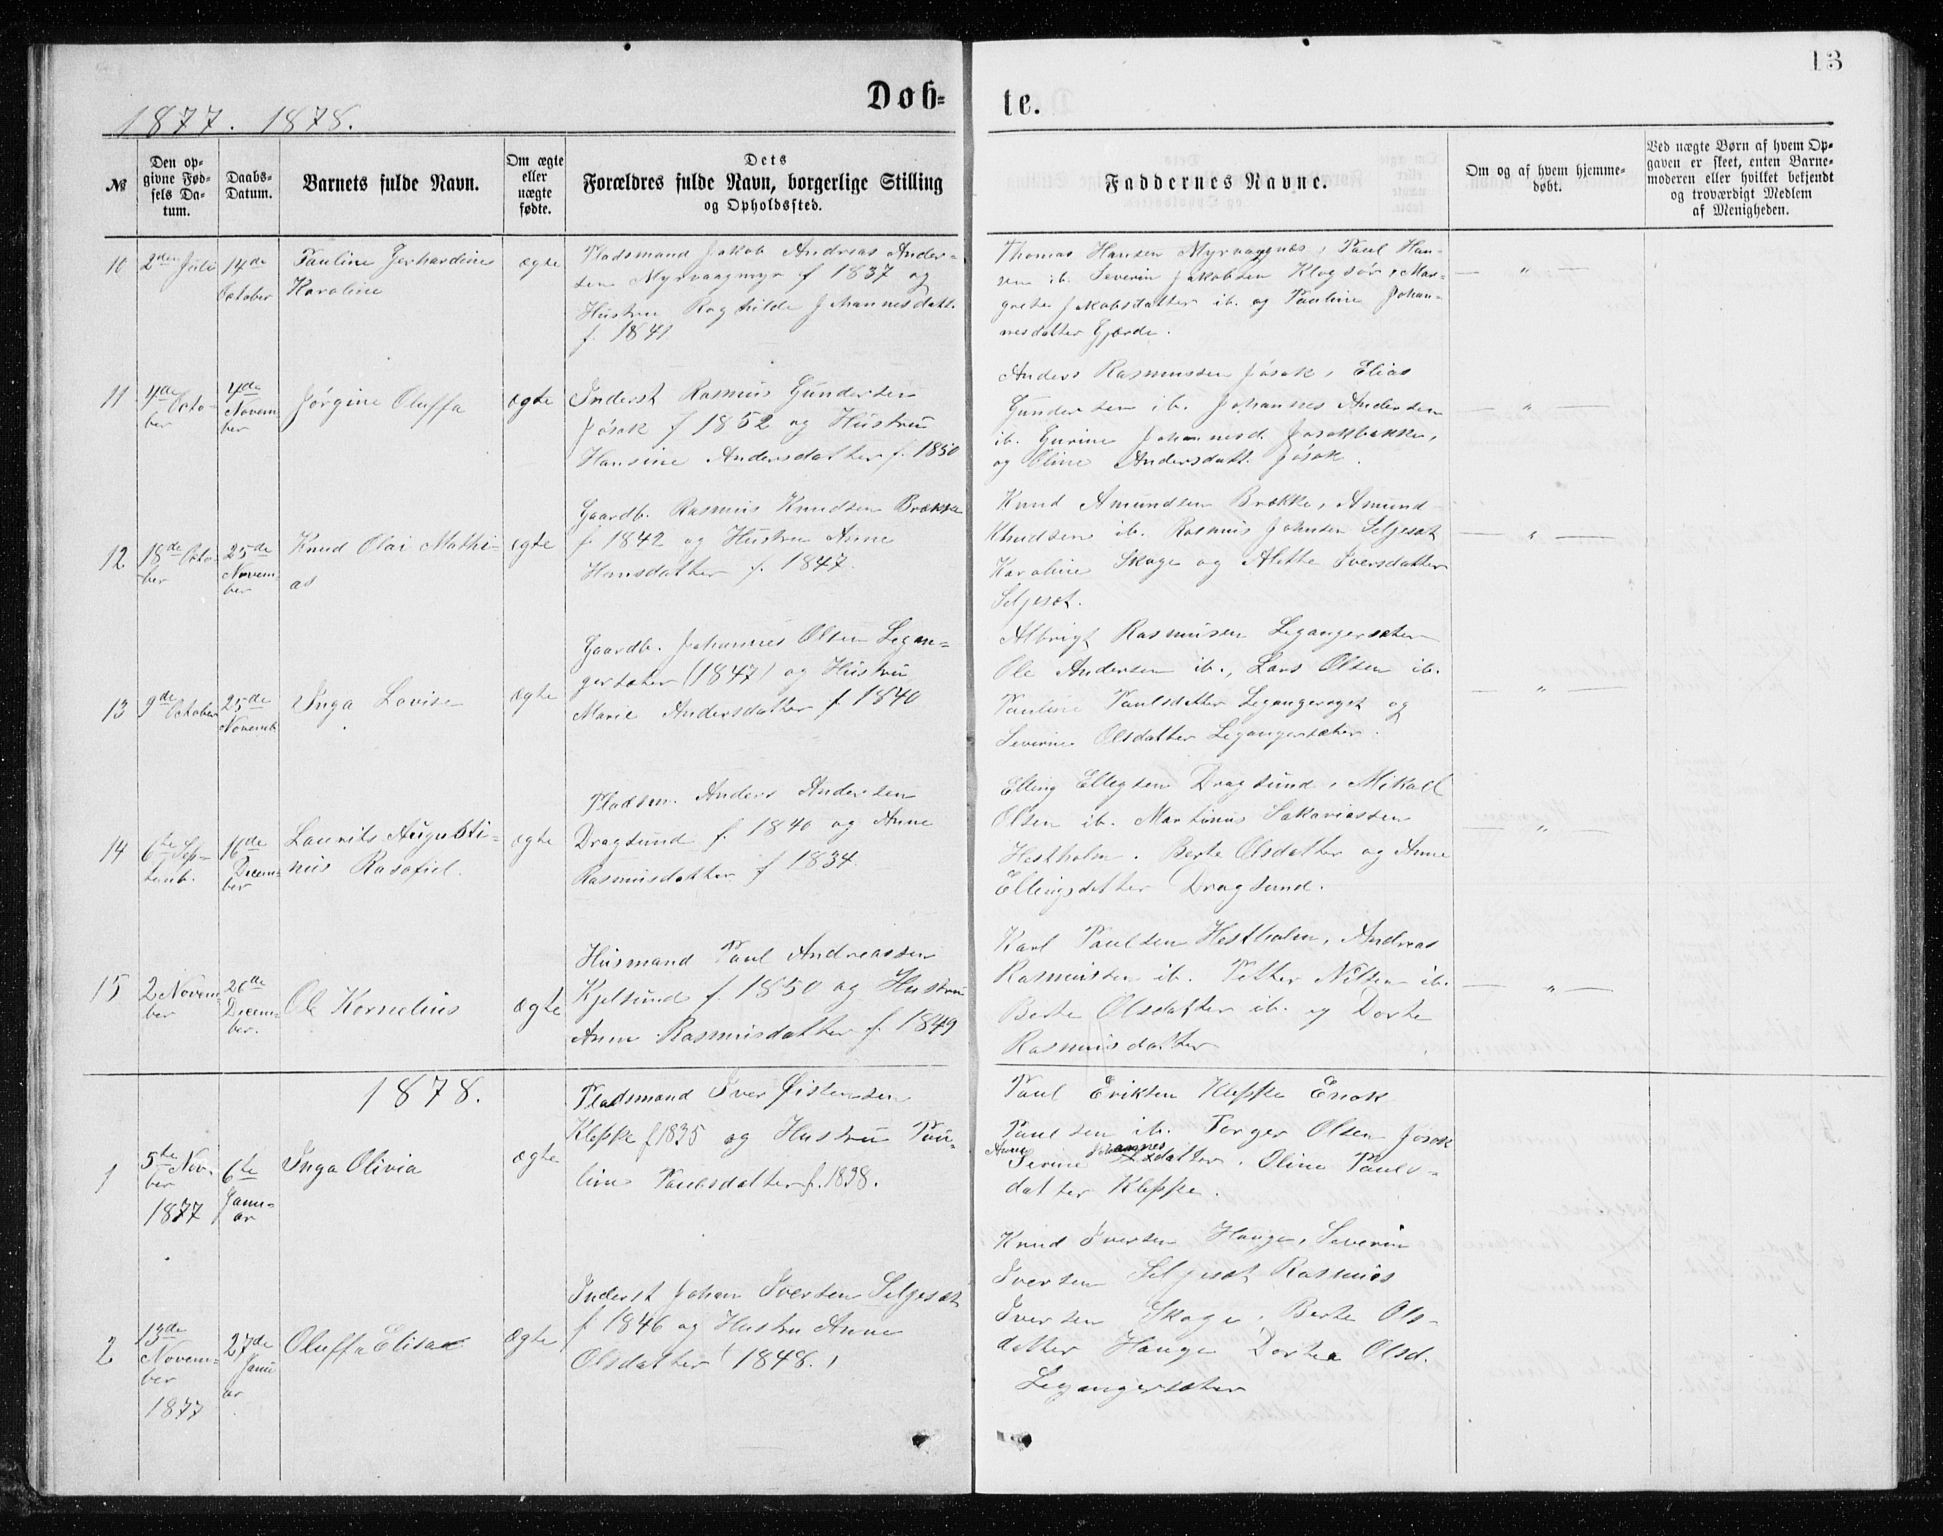 13
Døb-
te.
1877. 1878.
№
Den op-
givne Fød-
sels Da-
tum.
Daabs-
Datum.
Barnets fulde Navn.
Om ægte
eller
uægte
fødte.
Dets
Forældres fulde Navn, borgerlige Stilling
og Opholdssted.
Faddernes Navne.
Om og af hvem hjemme-
døbt.
Ved uægte Børn af hvem Op-
gaven er skeet, enten Barne-
moderen eller hvilket bekjendt
og troværdigt Medlem
af Menigheden.
10
2den Juli
14de
October
Pauline Gerhardine
Karoline
ægte
Pladsmand Jakob Andreas Ander-
sen Myrvaagmyr f 1837 og
Hustru Ragnhilde Johannesdatt.
f. 1841
Thomas Hansen Myrvaagnæs, Paul Han-
sen ib. Severin Jakobsen Klogsør, Mar-
grete Jakobsdatter ib. og Pauline Johan-
nesdatter Gjærde.
— " —
11
4de Octo-
ber
4de
Novem
ber
Jørgine Oluffa
ægte
Inderst Rasmus Gundersen
Jøsok f 1852 og Hustru
Hansine Andersdatter f. 1850
Anders Rasmussen Jøsok, Elias
Gundersen ib. Johannes Andersen
ib. Gurine Johannesd. Jøsokbakke,
og Oline Andersdatt. Jøsok.
— " —
12
18de Octo-
ber
25de
Novem
ber
Knud Olai Mathi-
as
ægte
Gaardb. Rasmus Knudsen Brække
f 1842 og Hustru Anne
Hansdatter f. 1847.
Knud Amundsen Brække, Amund
Knudsen ib. Rasmus Johnsen Seljesæt
Karoline Skoge og Alette Iversdatter
Seljesæt.
— " —
13
9de October
25de
Novemb
Inga Lovise
ægte
Gaardb. Johannes Olsen Legan-
gersæter (1847) og Hustru
Marie Andersdatter f 1840
Albrigt Rasmusen Legangersæter
Ole Andersen ib., Lars Olsen ib.
Pauline Paulsdatter Legangeroyst og
Severine Olsdatter Legangersæter.
— " —
14
6te Sep-
temb.
16de
Decem-
ber
Laurits Augusti-
nus Rasofiel.
ægte
Pladsm. Anders Andersen
Dragsund f. 1840 og Anne
Rasmusdatter f 1834.
Elling Ellegsen Dragsund, Mikall
Olsen ib. Martinus Sakariassen
Hestholm. Berte Olsdatter og Anne
Ellingsdatter Dragsund.
— " —
15
2 Novem-
ber
26de
Decem-
ber.
Ole Kornelius
ægte
Husmand Paul Andreassen
Kjelsund f. 1850 og Hustru
Anne Rasmusdatter f. 1849
Karl Paulsen Hestholm, Andreas
Rasmussen ib. Petter Nilsen ib.
Berte Olsdatter ib. og Dorte
Rasmusdatter
— " —
1878.
1
5te Nov.
ber
1877
6te
Janu-
ar
Inga Olivia
ægte
Pladsmand Iver Øistensen
Kleppe f 1835 og Hustru Pau-
line Paulsdatter f. 1838.
Paul Eriksen Kleppe Enok
Paulsen ib. Torger Olsen Jøsok
Anne Johannes
Serine datter. Oline Pauls-
datter Kleppe.
2
13de
Novem-
ber
1877
27de
Janu
ar
Oluffa Elisa
ægte
Inderst Johan Iversen Seljesæt
f 1846 og Hustru Anne
Olsdatter f 1848.
Knud Iversen Hauge, Severin
Iversen Seljesæt Rasmus
Iversen Skoge. Berte Ols-
datter Hauge Dortea Olsd.
Legangersæter